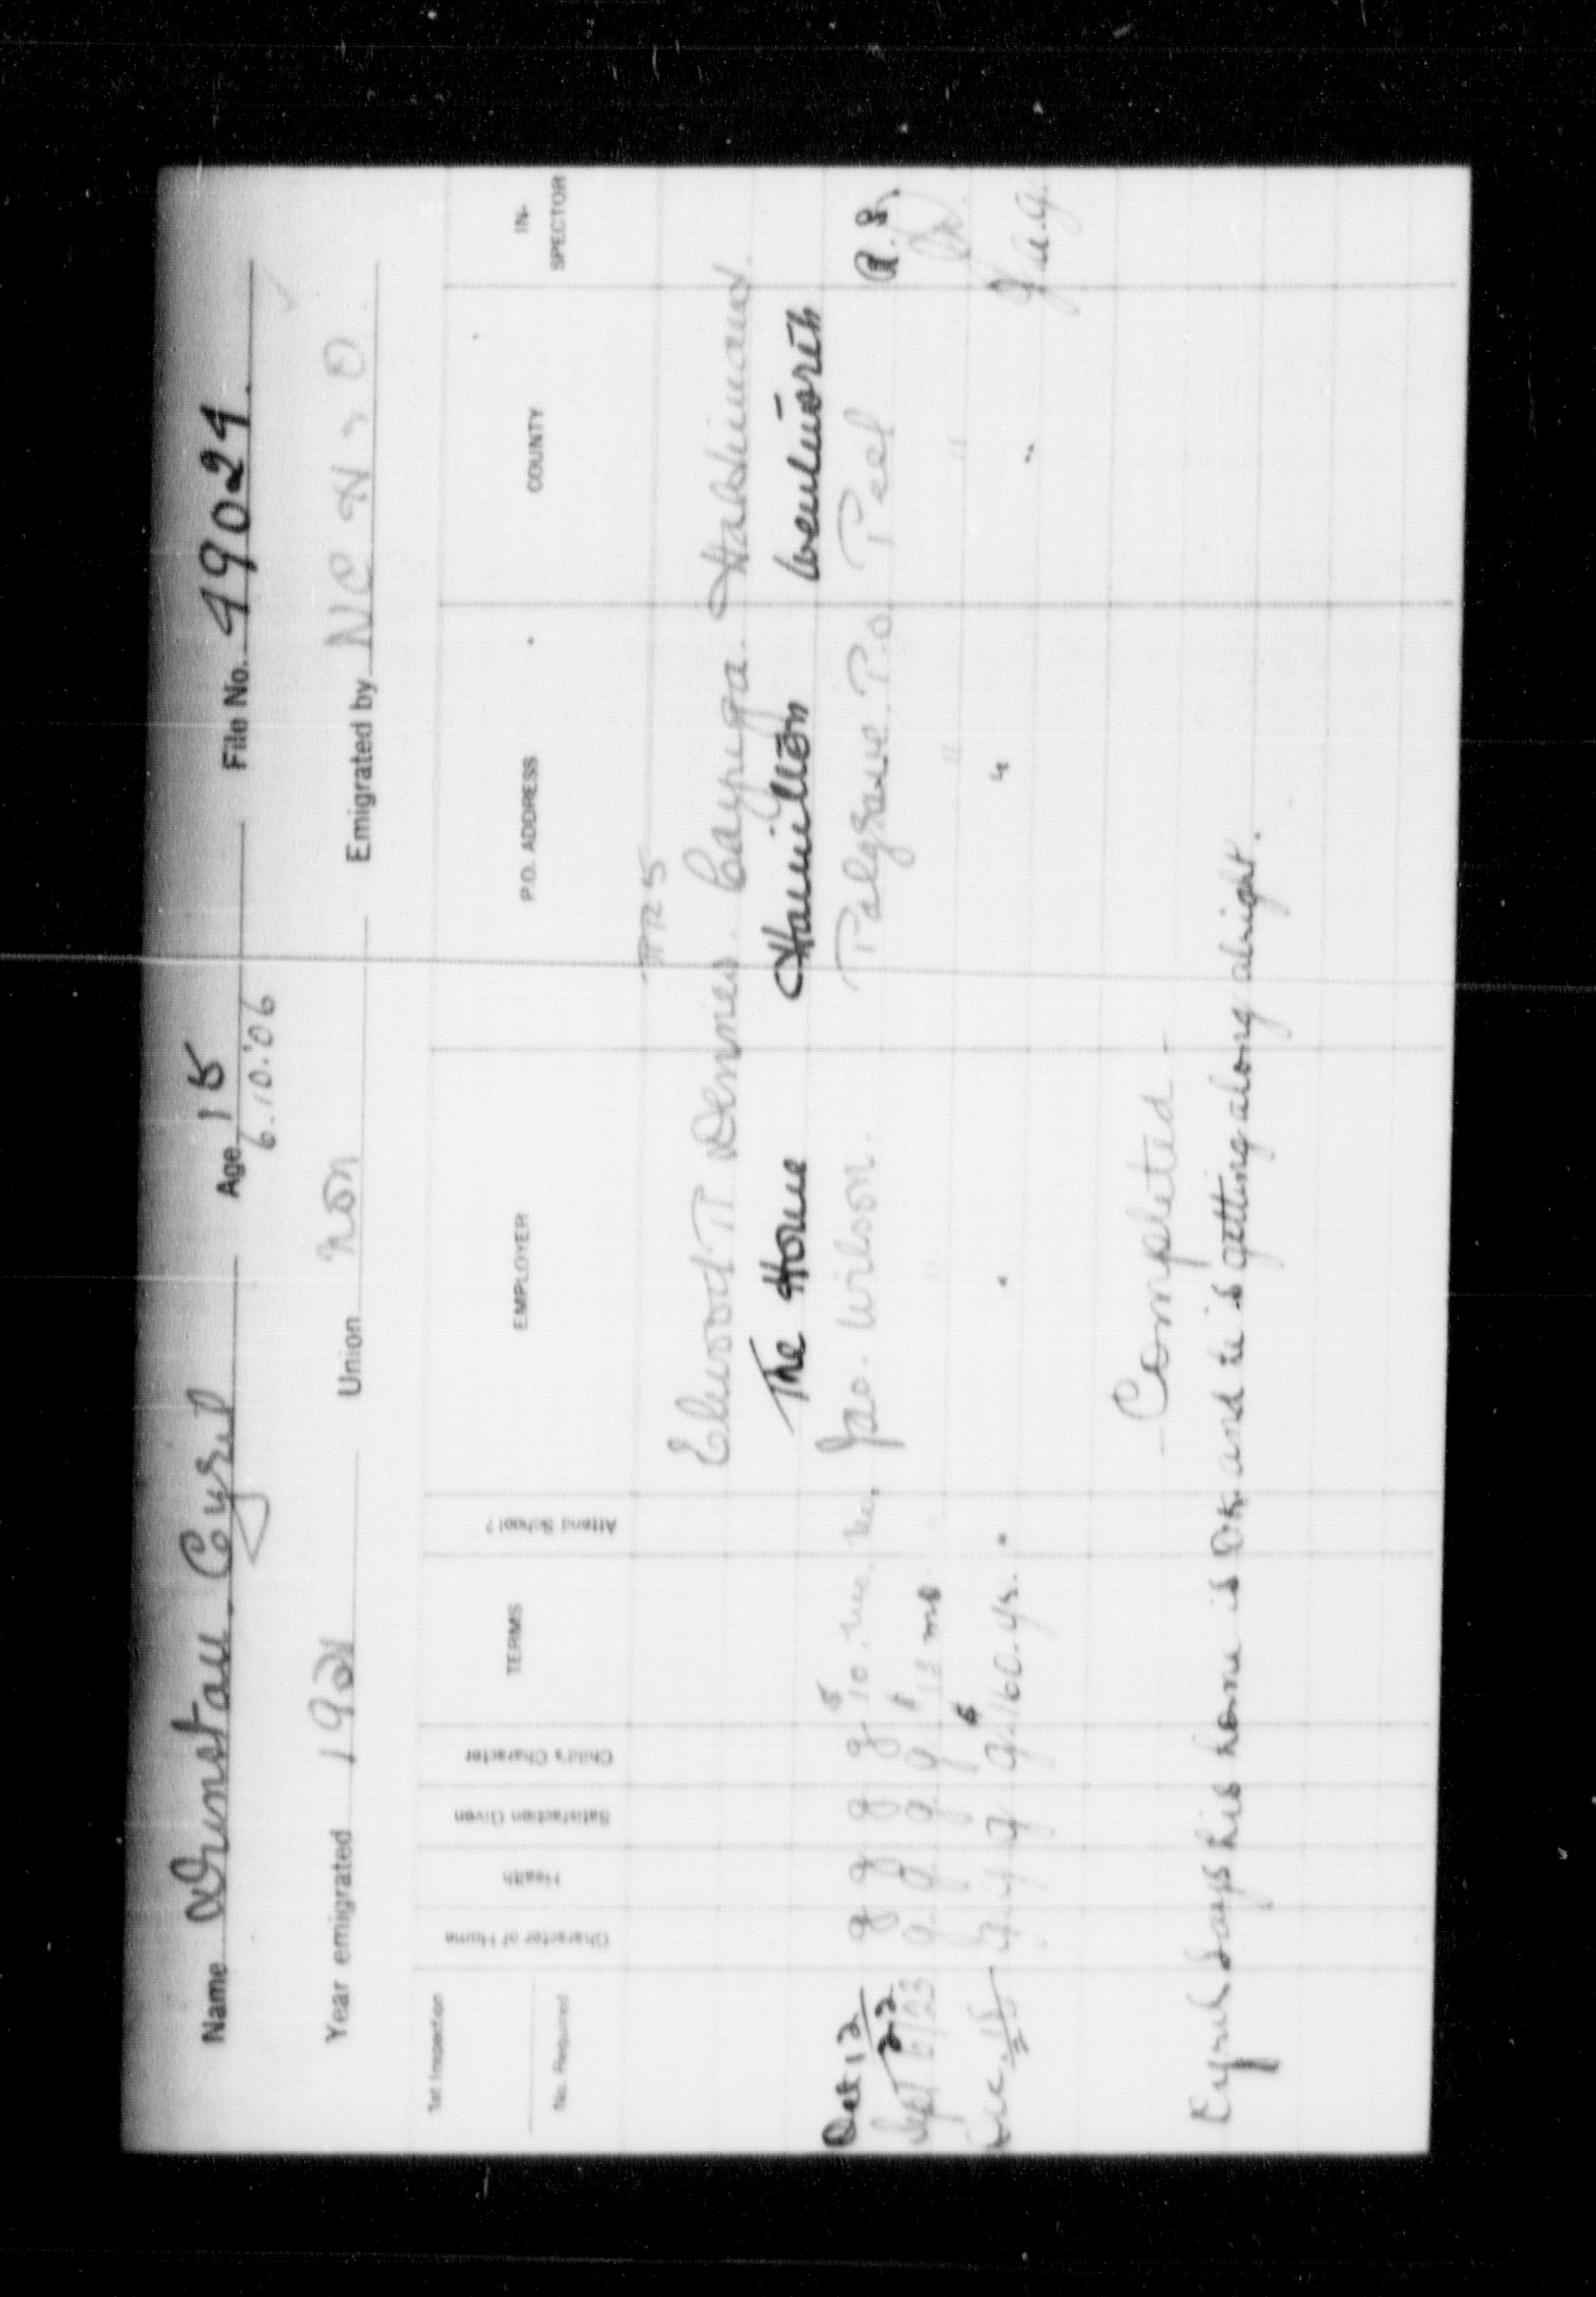 Name Dunstan Cyril Age 15 File No. 49024
6.10.'06
Year emigrated 1921 Union non Emigrated by N C H & O
1st Inspection
No. Required
Character of Home Health Satisfaction Given Child's Character TERMS Attend School? EMPLOYER P.O. ADDRESS COUNTY IN-SPECTOR
RR 5
Elwood T. Dennes. Cayuga. Haldimand.
The Home Hamilton Wentworth
Oct 12/22 g g g g $10. mo. no. Jas. Wilson. Palgrave. P.O. Peel
Sept 6/23 g g g g $12 mo " " "
g g g g $160. yr. " " " "
- Completed -
Cyril says his home is O.K. and he is getting along alright.